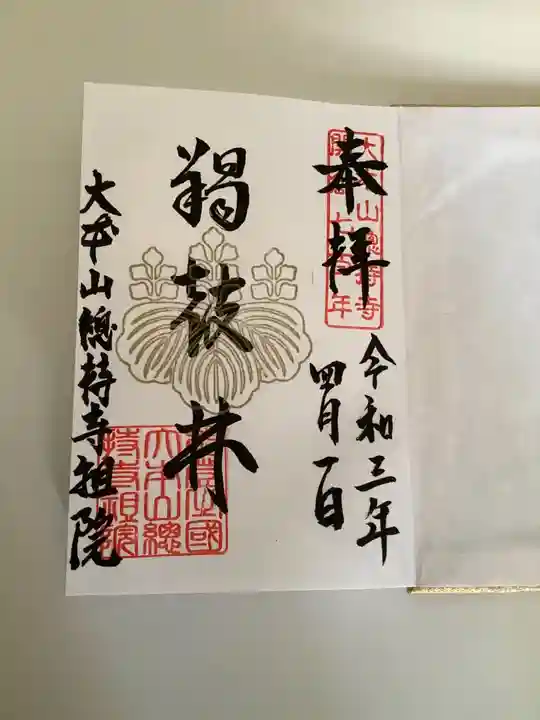 奉拝
大本山總持寺
開創七百年
令和三年
四月一日
羯鼓林
能登國
大本山總
持寺祖院
大本山總持寺祖院